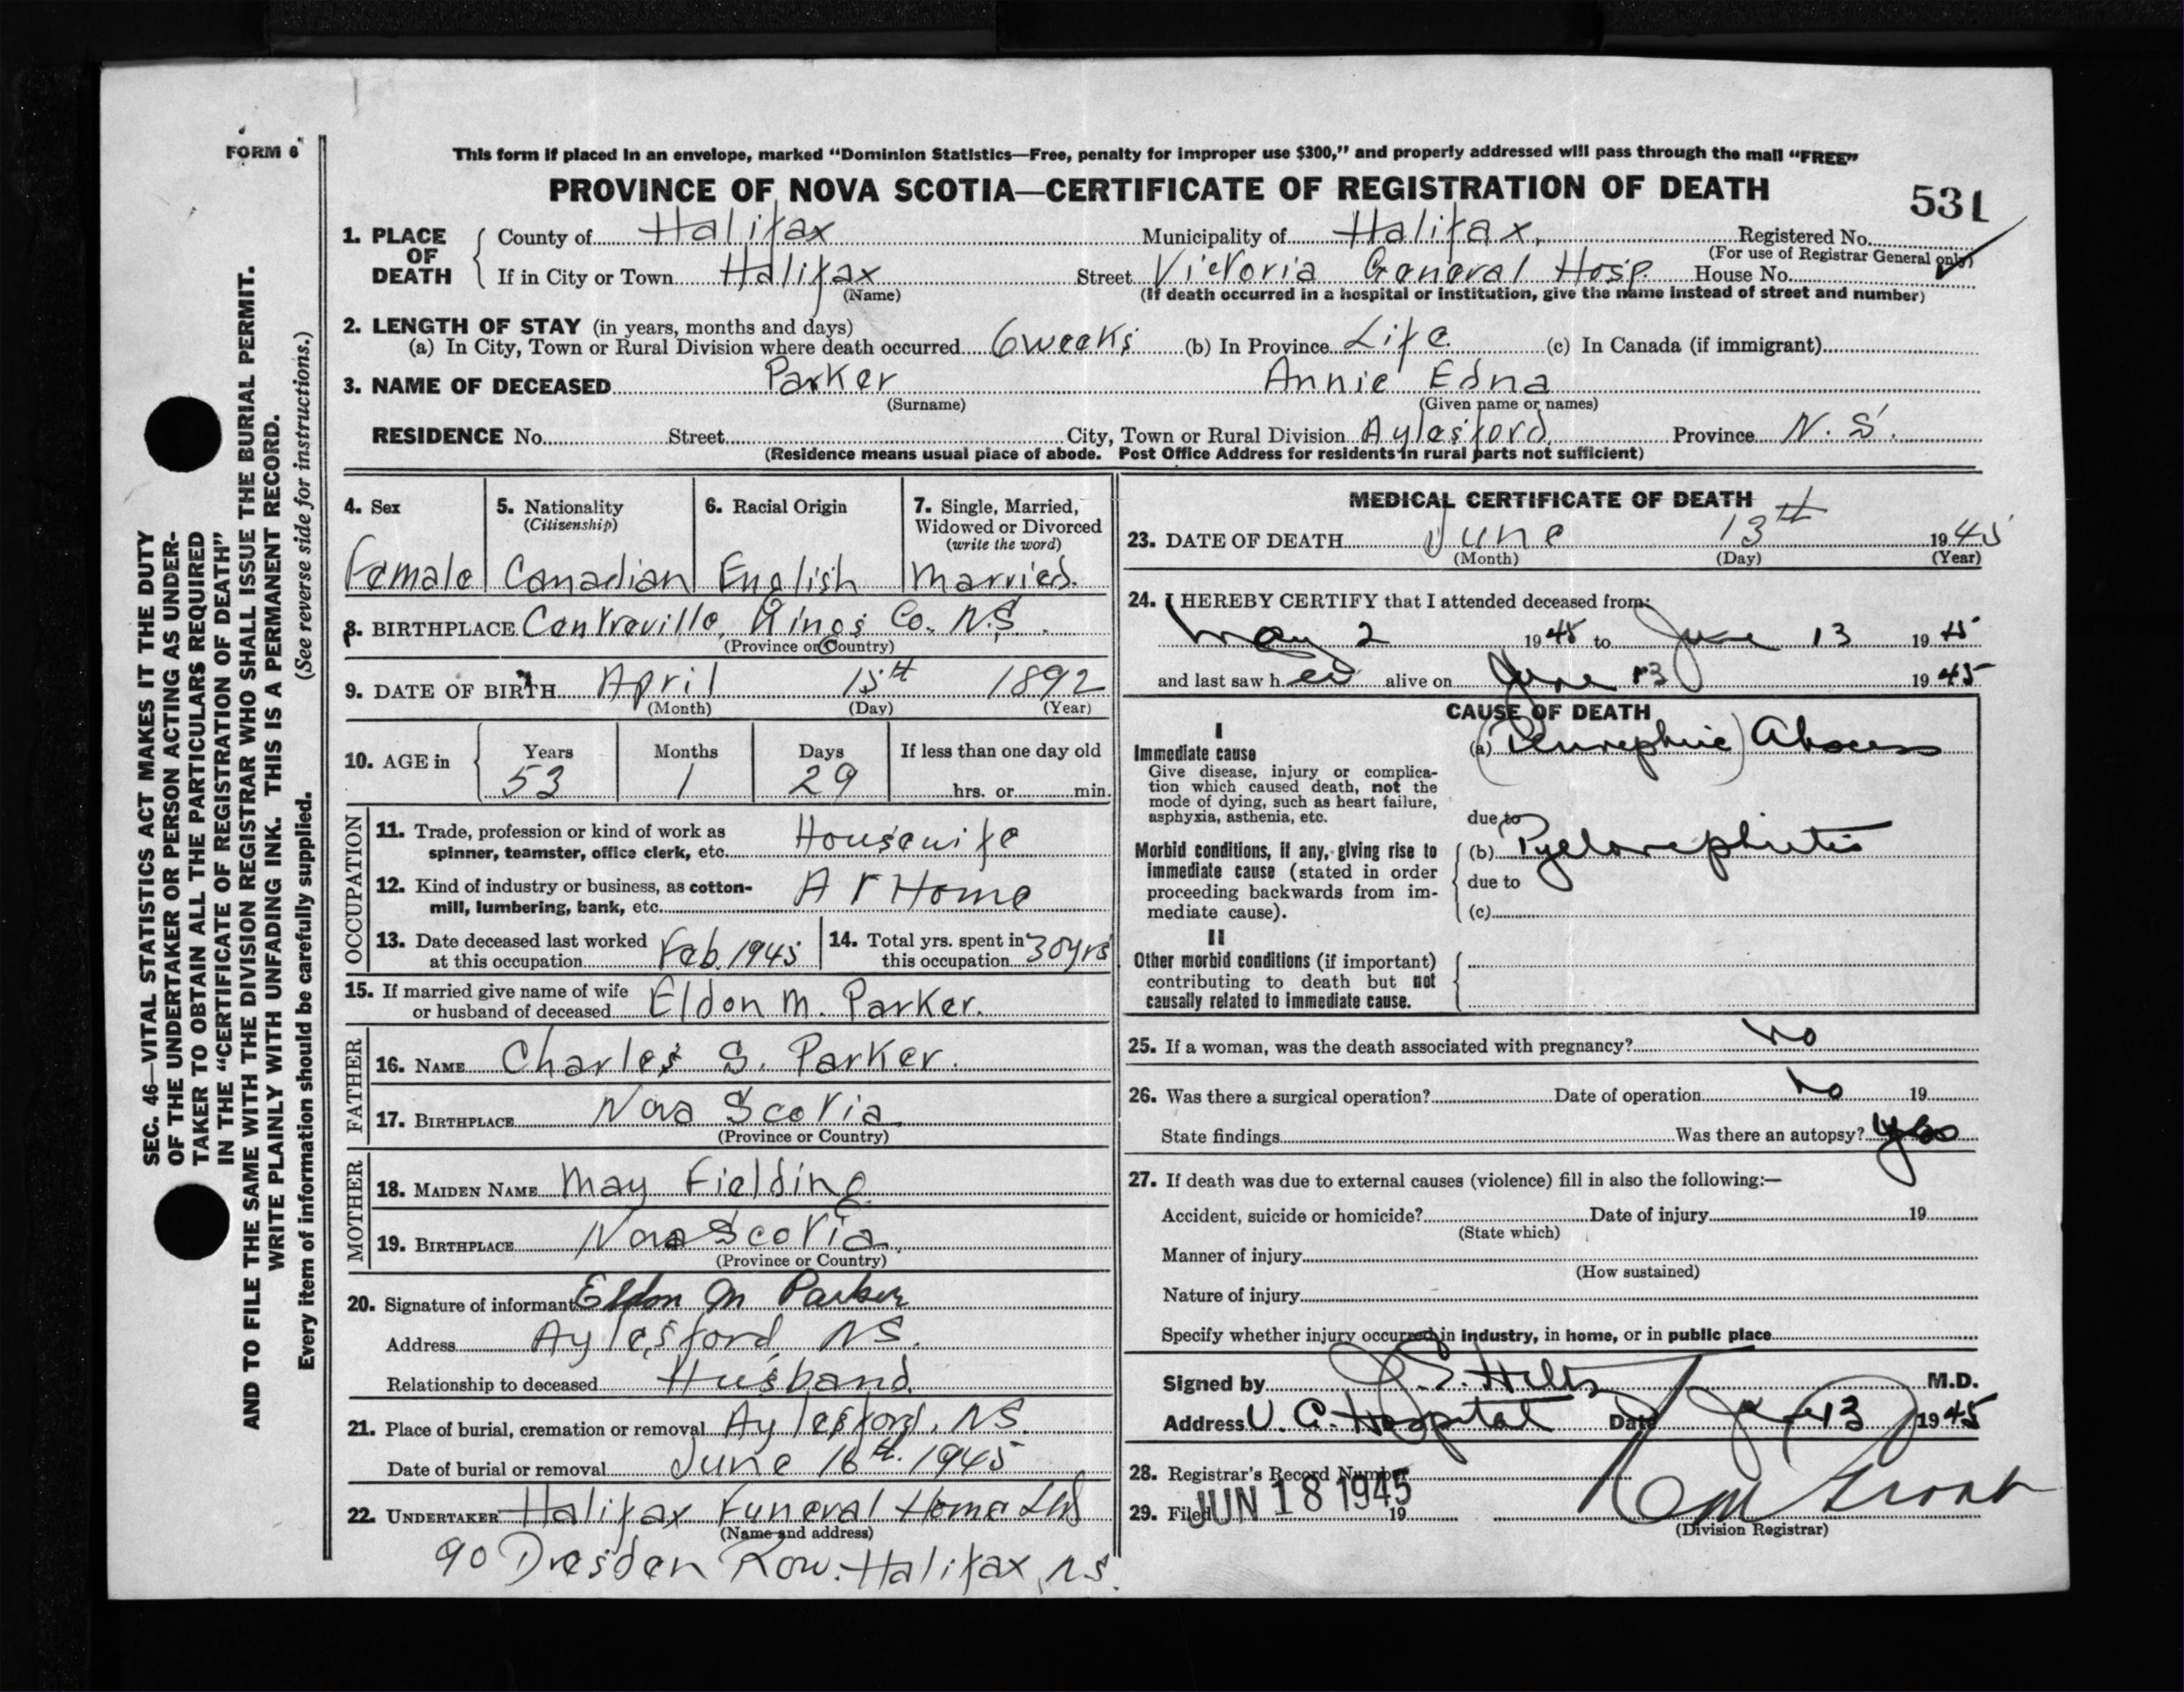 FORM 6
This form if placed in an envelope, marked “Dominion Statistics—Free, penalty for improper use $300,” and properly addressed will pass through the mail “FREE”
PROVINCE OF NOVA SCOTIA—CERTIFICATE OF REGISTRATION OF DEATH
531
1. PLACE OF DEATH County of Halifax Municipality of Halifax, Registered No.
(For use of Registrar General only)
If in City or Town Halifax Street Victoria General Hosp. House No.
(Name) (If death occurred in a hospital or institution, give the name instead of street and number)
2. LENGTH OF STAY (in years, months and days)
(a) In City, Town or Rural Division where death occurred 6 weeks (b) In Province Life. (c) In Canada (if immigrant)
3. NAME OF DECEASED Parker Annie Edna
(Surname) (Given name or names)
RESIDENCE No. Street City, Town or Rural Division Aylesford Province N.S.
(Residence means usual place of abode. Post Office Address for residents in rural parts not sufficient)
4. Sex 5. Nationality 6. Racial Origin 7. Single, Married,
(Citizenship) Widowed or Divorced
(write the word)
Female Canadian English Married.
8. BIRTHPLACE Centreville, Kings Co. N.S.
(Province or Country)
9. DATE OF BIRTH April 15th 1892
(Month) (Day) (Year)
10. AGE in Years Months Days If less than one day old
53 1 29 hrs. or min.
OCCUPATION
11. Trade, profession or kind of work as
spinner, teamster, office clerk, etc. Housewife
12. Kind of industry or business, as cotton-
mill, lumbering, bank, etc. At Home
13. Date deceased last worked
at this occupation Feb. 1945
14. Total yrs. spent in
this occupation 30yrs
15. If married give name of wife
or husband of deceased Eldon M. Parker.
FATHER
16. NAME Charles S. Parker.
17. BIRTHPLACE Nova Scotia
(Province or Country)
MOTHER
18. MAIDEN NAME May Fielding
19. BIRTHPLACE Nova Scotia.
(Province or Country)
20. Signature of informant Eldon M Parker
Address Aylesford, NS.
Relationship to deceased Husband.
21. Place of burial, cremation or removal Aylesford, NS.
Date of burial or removal June 16th. 1945
22. UNDERTAKER Halifax Funeral Home Ltd
(Name and address)
90 Dresden Row. Halifax, N.S.
MEDICAL CERTIFICATE OF DEATH
23. DATE OF DEATH June 13th 1945
(Month) (Day) (Year)
24. I HEREBY CERTIFY that I attended deceased from:
May 2 1945 to June 13 1945
and last saw her alive on June 13 1945
CAUSE OF DEATH
I
Immediate cause
Give disease, injury or complica-
tion which caused death, not the
mode of dying, such as heart failure,
asphyxia, asthenia, etc.
(a) Abscess
due to
Morbid conditions, if any, giving rise to
immediate cause (stated in order
proceeding backwards from im-
mediate cause).
(b) Pyelonephritis
due to
(c)
II
Other morbid conditions (if important)
contributing to death but not
causally related to immediate cause.
25. If a woman, was the death associated with pregnancy? No
26. Was there a surgical operation? Date of operation No 19
State findings Was there an autopsy? Yes
27. If death was due to external causes (violence) fill in also the following:—
Accident, suicide or homicide? Date of injury 19
(State which)
Manner of injury
(How sustained)
Nature of injury
Specify whether injury occurred in industry, in home, or in public place
Signed by M.D.
Address V. G. Hospital Date June 13 1945
28. Registrar's Record Number
29. Filed JUN 18 1945 19
(Division Registrar)
SEC. 46—VITAL STATISTICS ACT MAKES IT THE DUTY
OF THE UNDERTAKER OR PERSON ACTING AS UNDER-
TAKER TO OBTAIN ALL THE PARTICULARS REQUIRED
IN THE “CERTIFICATE OF REGISTRATION OF DEATH”
AND TO FILE THE SAME WITH THE DIVISION REGISTRAR WHO SHALL ISSUE THE BURIAL PERMIT.
WRITE PLAINLY WITH UNFADING INK. THIS IS A PERMANENT RECORD.
Every item of information should be carefully supplied. (See reverse side for instructions.)